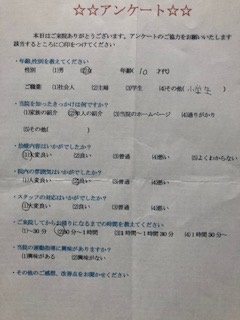 ☆☆アンケート☆☆
本日はご来院ありがとうございます。アンケートのご協力をお願いいたします
該当するところに○印をつけてください
・年齢,性別を教えてください
性別 (1)男 (2)女 年齢( 10 才代)
ご職業 (1)社会人 (2)主婦 (3)学生 (4)その他( 小学生 )
・当院を知ったきっかけは何ですか?
(1)家族の紹介 (2)知人の紹介 (3)当院のホームページ (4)通りがかり
(5)その他( )
・治療内容はいかがでしたか?
(1)大変良い (2)良い (3)普通 (4)悪い (5)よくわからない
・院内の雰囲気はいかがでしたか?
(1)大変良い (2)良い (3)普通 (4)悪い
・スタッフの対応はいかがでしたか?
(1)大変良い (2)良い (3)普通 (4)悪い
・ご来院してからお帰りになるまでの時間を教えてください
(1)~30分 (2)30分~1時間 (3)1時間~1時間30分 (4)1時間30分~
・当院の運動指導に興味がありますか?
(1)興味がある (2)興味がない
・その他のご感想、改善点をお聞かせください